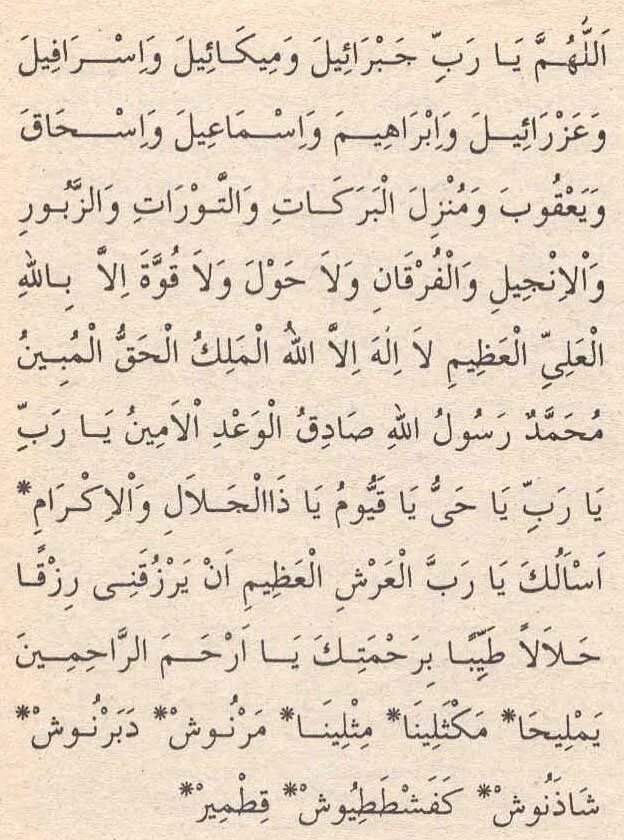 اَللّٰهُمَّ يَا رَبِّ جَبْرَائِيلَ وَمِيكَائِيلَ وَاِسْرَافِيلَ
وَعَزْرَائِيلَ وَاِبْرَاهِيمَ وَاِسْمَاعِيلَ وَاِسْحَاقَ
وَيَعْقُوبَ وَمُنْزِلَ الْبَرَكَاتِ وَالتَّوْرَاتِ وَالزَّبُورِ
وَاْلاِنْجِيلِ وَالْفُرْقَانِ وَلاَ حَوْلَ وَلاَ قُوَّةَ اِلاَّ بِاللهِ
الْعَلِىِّ الْعَظِيمِ لاَ اِلٰهَ اِلاَّ اللهُ الْمَلِكُ الْحَقُّ الْمُبِينُ
مُحَمَّدٌ رَسُولُ اللهِ صَادِقُ الْوَعْدِ اْلاَمِينُ يَا رَبِّ
يَا رَبِّ يَا حَىُّ يَا قَيُّومُ يَا ذَاالْجَلاَلِ وَاْلاِكْرَامِ*
اَسْاَلُكَ يَا رَبَّ الْعَرْشِ الْعَظِيمِ اَنْ يَرْزُقَنِى رِزْقًا
حَلاَلاً طَيِّبًا بِرَحْمَتِكَ يَا اَرْحَمَ الرَّاحِمِينَ
يَمْلِيحَا* مَكْثَلِينَا* مِثْلِينَا* مَرْنُوشْ* دَبَرْنُوشْ*
شَاذَنُوشْ* كَفَشْطَطِيُوشْ* قِطْمِيرْ*